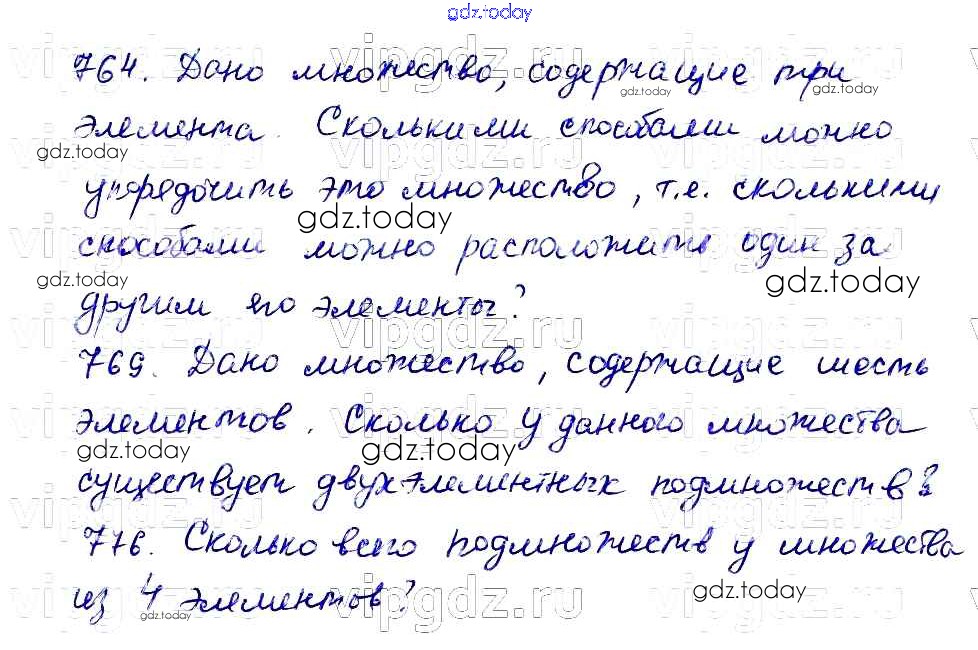 gdz.today
764. Дано множество, содержащие три
gdz.today gdz.today
элемента. Сколькими способами можно
gdz.today
vipgdz.ru vipgdz.ru
упорядочить это множество, т.е. сколькими
gdz.today
способами можно расположить один за
gdz.today gdz.today
другим его элементы?
vipgdz.ru vipgdz.ru
769. Дано множество, содержащие шесть
элементов. Сколько у данного множества
gdz.today gdz.today
существует двухэлементных подмножеств?
vipgdz.ru vipgdz.ru
776. Сколько всего подмножеств у множества
из 4 элементов?
gdz.today gdz.today
vipgdz.ru vipgdz.ru